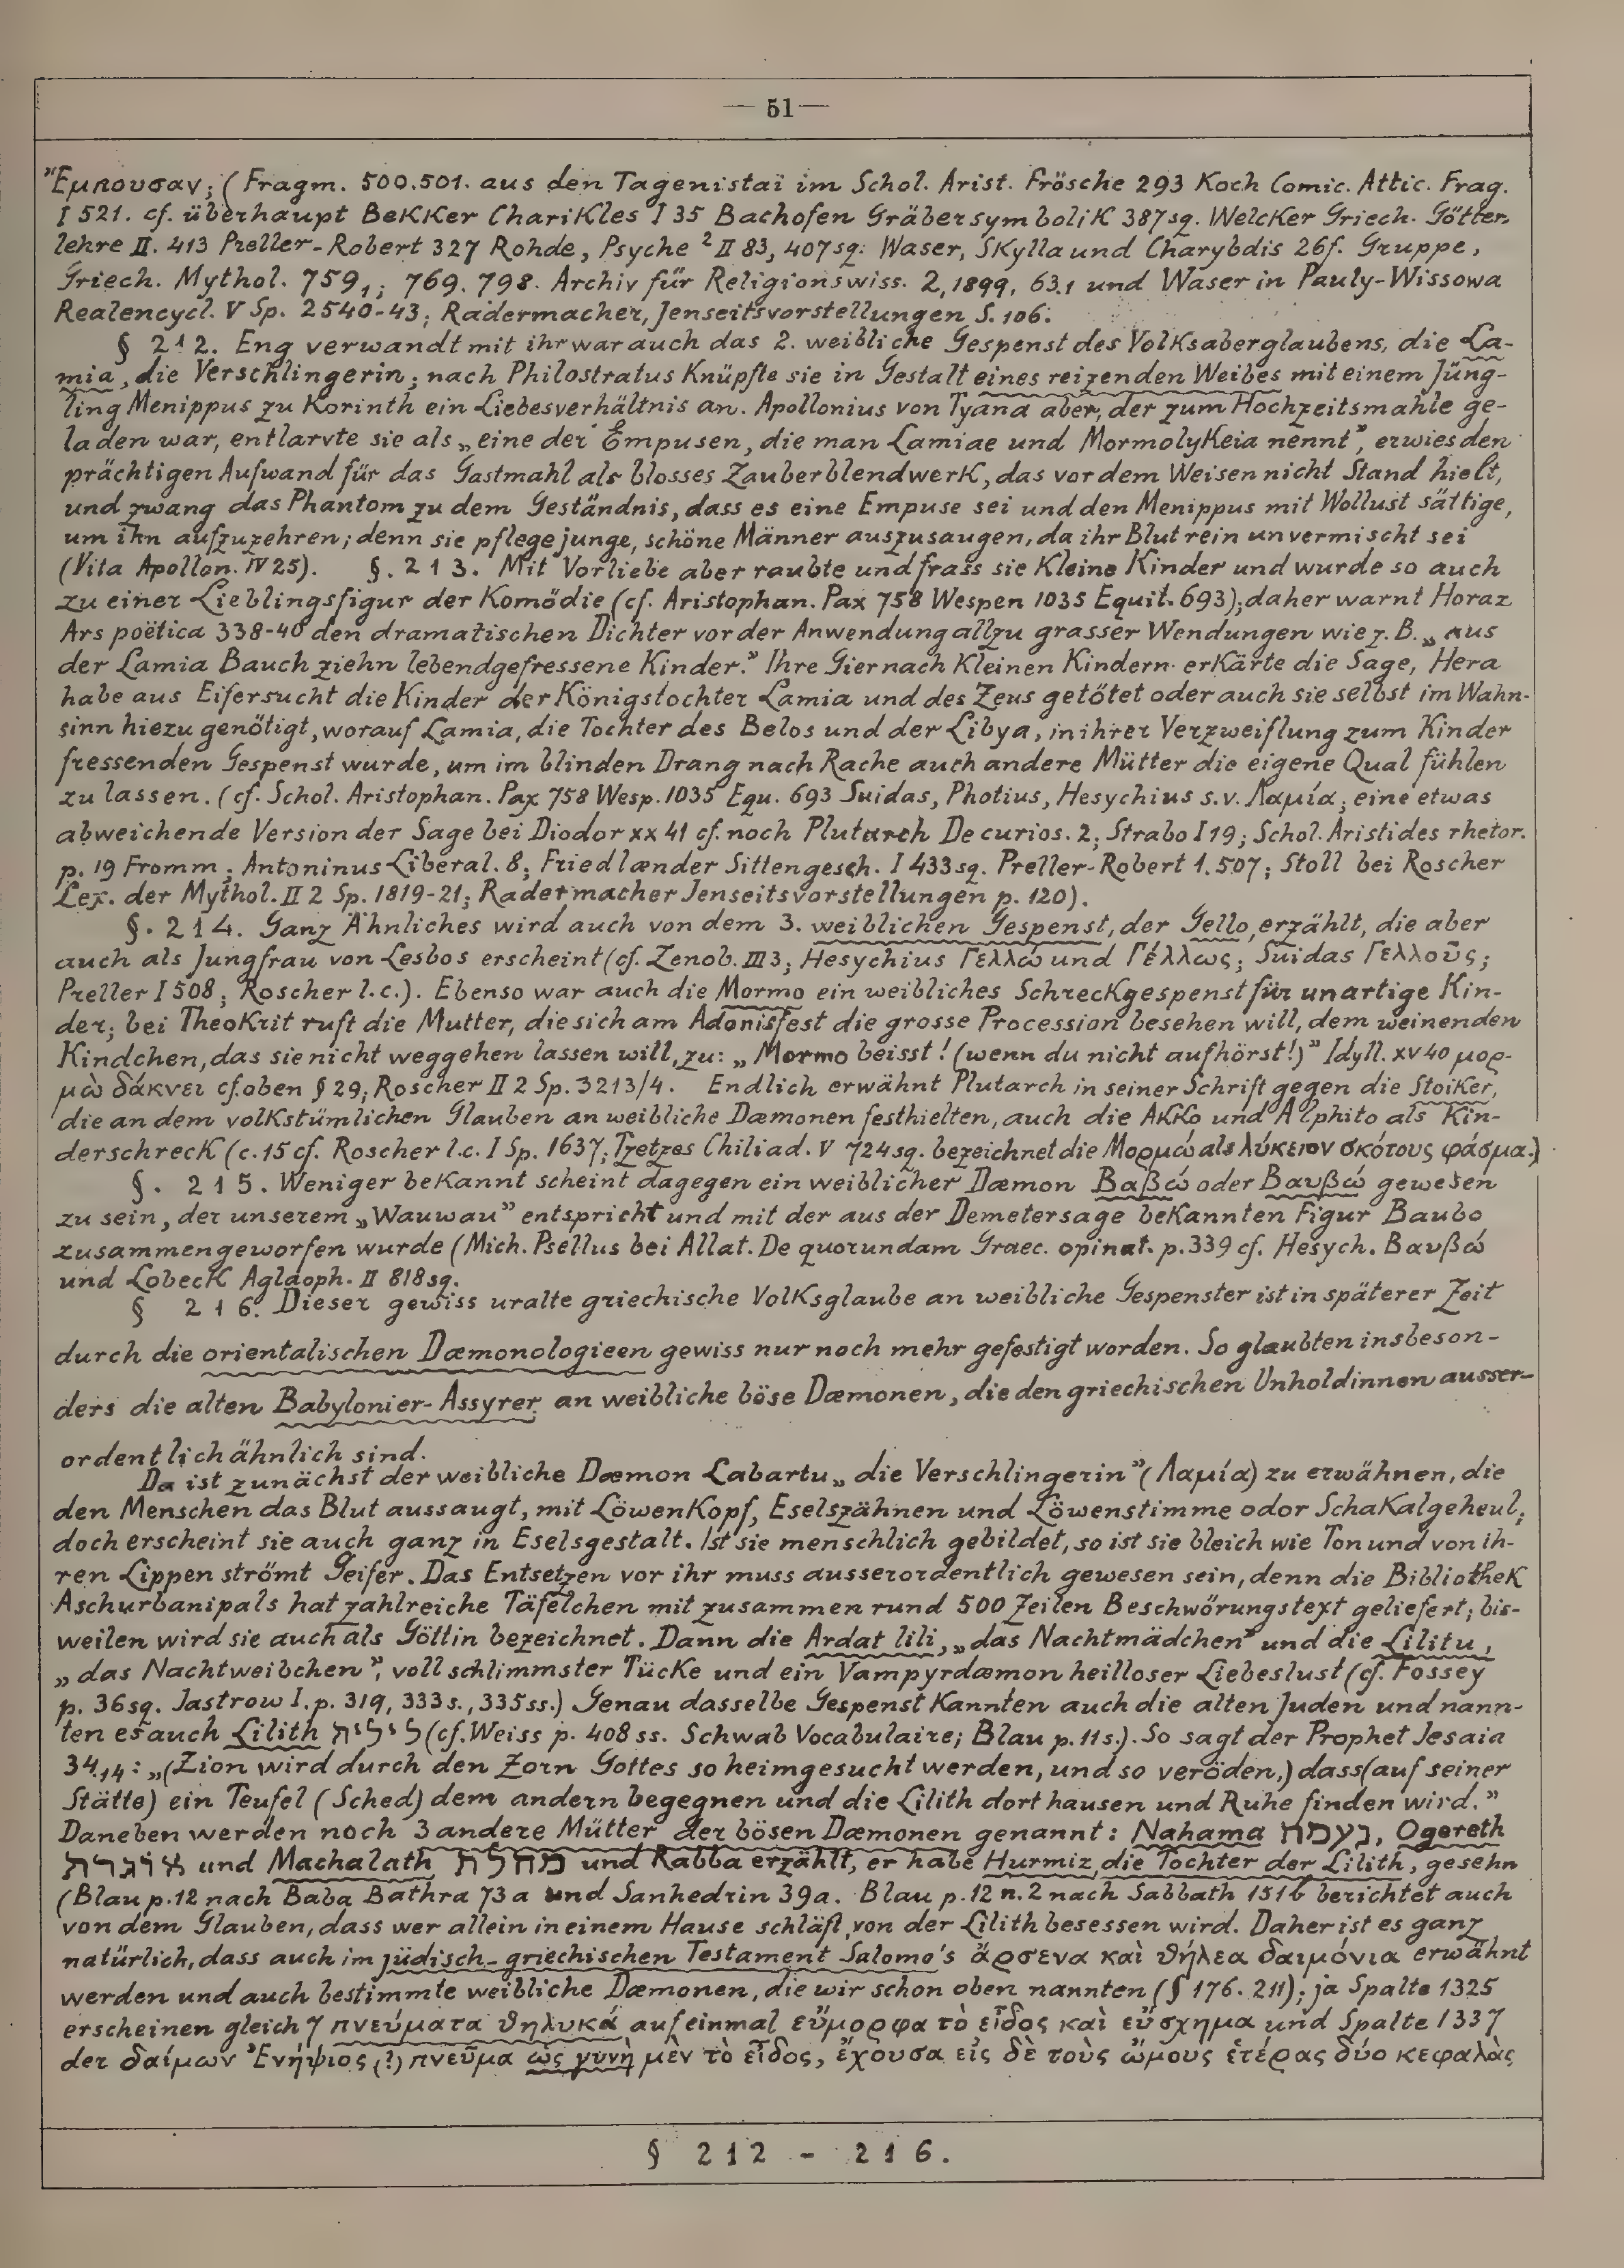 — 51 —
Ἔμπουσαν; (Fragm. 500.501. aus den Tagenistai im Schol. Arist. Frösche 293 Koch Comic. Attic. Frag.
I 521. cf. überhaupt Bekker Charikles I 35 Bachofen Gräbersymbolik 387sq. Welcker Griech. Götter-
lehre II. 413 Preller-Robert 327 Rohde, Psyche ² II 83, 407sq. Waser, Skylla und Charybdis 26f. Gruppe,
Griech. Mythol. 759,1; 769. 798. Archiv für Religionswiss. 2, 1899, 63.1 und Waser in Pauly-Wissowa
Realencycl. V Sp. 2540-43; Radermacher, Jenseitsvorstellungen S. 106.
§ 212. Eng verwandt mit ihr war auch das 2. weibliche Gespenst des Volksaberglaubens, die La-
mia, die Verschlingerin; nach Philostratus knüpfte sie in Gestalt eines reizenden Weibes mit einem Jüng-
ling Menippus zu Korinth ein Liebesverhältnis an. Apollonius von Tyana aber, der zum Hochzeitsmahle ge-
laden war, entlarvte sie als „eine der Empusen, die man Lamiae und Mormolykeia nennt”, erwies den
prächtigen Aufwand für das Gastmahl als blosses Zauberblendwerk, das vor dem Weisen nicht Stand hielt,
und zwang das Phantom zu dem Geständnis, dass es eine Empuse sei und den Menippus mit Wollust sättige,
um ihn aufzuzehren; denn sie pflege junge, schöne Männer auszusaugen, da ihr Blut rein unvermischt sei
(Vita Apollon. IV 25). §. 213. Mit Vorliebe aber raubte und frass sie kleine Kinder und wurde so auch
zu einer Lieblingsfigur der Komödie (cf. Aristophan. Pax 758 Wespen 1035 Equit. 693); daher warnt Horaz
Ars poëtica 338-40 den dramatischen Dichter vor der Anwendung allzu grasser Wendungen wie z. B. „aus
der Lamia Bauch ziehn lebendgefressene Kinder.” Ihre Gier nach kleinen Kindern erkärte die Sage, Hera
habe aus Eifersucht die Kinder der Königstochter Lamia und des Zeus getötet oder auch sie selbst im Wahn-
sinn hiezu genötigt, worauf Lamia, die Tochter des Belos und der Libya, in ihrer Verzweiflung zum Kinder
fressenden Gespenst wurde, um im blinden Drang nach Rache auch andere Mütter die eigene Qual fühlen
zu lassen. (cf. Schol. Aristophan. Pax 758 Wesp. 1035 Equ. 693 Suidas, Photius, Hesychius s.v. Λαμία; eine etwas
abweichende Version der Sage bei Diodor xx 41 cf. noch Plutarch De curios. 2; Strabo I 19; Schol. Aristides rhetor.
p. 19 Fromm; Antoninus Liberal. 8; Friedlænder Sittengesch. I 433sq. Preller-Robert 1. 507; Stoll bei Roscher
Lex. der Mythol. II 2 Sp. 1819-21; Radermacher Jenseitsvorstellungen p. 120).
§. 214. Ganz Ähnliches wird auch von dem 3. weiblichen Gespenst, der Gello, erzählt, die aber
auch als Jungfrau von Lesbos erscheint (cf. Zenob. III 3; Hesychius Γελλώ und Γέλλως; Suidas Γελλοῦς;
Preller I 508; Roscher l.c.). Ebenso war auch die Mormo ein weibliches Schreckgespenst für unartige Kin-
der; bei Theokrit ruft die Mutter, die sich am Adonisfest die grosse Procession besehen will, dem weinenden
Kindchen, das sie nicht weggehen lassen will, zu: „Mormo beisst! (wenn du nicht aufhörst!)” Idyll. xv 40 μορ-
μὼ δάκνει cf. oben § 29; Roscher II 2 Sp. 3213/4. Endlich erwähnt Plutarch in seiner Schrift gegen die Stoiker,
die an dem volkstümlichen Glauben an weibliche Dæmonen festhielten, auch die Akko und Alphito als Kin-
derschreck (c. 15 cf. Roscher l.c. I Sp. 1637; Tzetzes Chiliad. V 724sq. bezeichnet die Μορμώ als λύκειον σκότους φάσμα.)
§. 215. Weniger bekannt scheint dagegen ein weiblicher Dæmon Βαβώ oder Βαυβώ gewesen
zu sein, der unserem „Wauwau” entspricht und mit der aus der Demetersage bekannten Figur Baubo
zusammengeworfen wurde (Mich. Psellus bei Allat. De quorundam Graec. opinat. p. 339 cf. Hesych. Βαυβώ
und Lobeck Aglaoph. II 818sq.
§ 216. Dieser gewiss uralte griechische Volksglaube an weibliche Gespenster ist in späterer Zeit
durch die orientalischen Dæmonologieen gewiss nur noch mehr gefestigt worden. So glaubten insbeson-
ders die alten Babylonier-Assyrer an weibliche böse Dæmonen, die den griechischen Unholdinnen ausser-
ordentlich ähnlich sind.
Da ist zunächst der weibliche Dæmon Labartu „die Verschlingerin” (Λαμία) zu erwähnen, die
den Menschen das Blut aussaugt, mit Löwenkopf, Eselszähnen und Löwenstimme oder Schakalgeheul;
doch erscheint sie auch ganz in Eselsgestalt. Ist sie menschlich gebildet, so ist sie bleich wie Ton und von ih-
ren Lippen strömt Geifer. Das Entsetzen vor ihr muss ausserordentlich gewesen sein, denn die Bibliothek
Aschurbanipals hat zahlreiche Täfelchen mit zusammen rund 500 Zeilen Beschwörungstext geliefert; bis-
weilen wird sie auch als Göttin bezeichnet. Dann die Ardat lili, „das Nachtmädchen” und die Lilitu,
„das Nachtweibchen”, voll schlimmster Tücke und ein Vampyrdæmon heilloser Liebeslust (cf. Fossey
p. 36sq. Jastrow I. p. 319, 333s., 335ss.) Genau dasselbe Gespenst kannten auch die alten Juden und nann-
ten es auch Lilith לילית (cf. Weiss p. 408ss. Schwab Vocabulaire; Blau p. 11s.). So sagt der Prophet Jesaia
34,14: „(Zion wird durch den Zorn Gottes so heimgesucht werden, und so veröden,) dass (auf seiner
Stätte) ein Teufel (Sched) dem andern begegnen und die Lilith dort hausen und Ruhe finden wird.”
Daneben werden noch 3 andere Mütter der bösen Dæmonen genannt: Nahama נעמח, Ogereth
אוגרת und Machalath מחלת und Rabba erzählt, er habe Hurmiz, die Tochter der Lilith, gesehn
(Blau p. 12 nach Baba Bathra 73a und Sanhedrin 39a. Blau p. 12 n. 2 nach Sabbath 151b berichtet auch
von dem Glauben, dass wer allein in einem Hause schläft, von der Lilith besessen wird. Daher ist es ganz
natürlich, dass auch im jüdisch-griechischen Testament Salomo's ἄρσενα καὶ θήλεα δαιμόνια erwähnt
werden und auch bestimmte weibliche Dæmonen, die wir schon oben nannten (§ 176. 211); ja Spalte 1325
erscheinen gleich 7 πνεύματα θηλυκά auf einmal εὔμορφα τὸ εἶδος καὶ εὔσχημα und Spalte 1337
der δαίμων Ἐνήψιος (?) πνεῦμα ὡς γυνὴ μὲν τὸ εἶδος, ἔχουσα εἰς δὲ τοὺς ὤμους ἑτέρας δύο κεφαλὰς
§ 212 - 216.